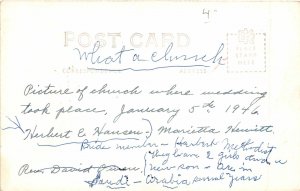 4
POST CARD
What a church
Picture of church where wedding
took place, January 5th 1946
Herbert E Hansen; Marietta Hewitt
Bride member - Harbert Methodist
They have 2 girls and a
Rev. David
new son - are in
Saudi - Arabia several years